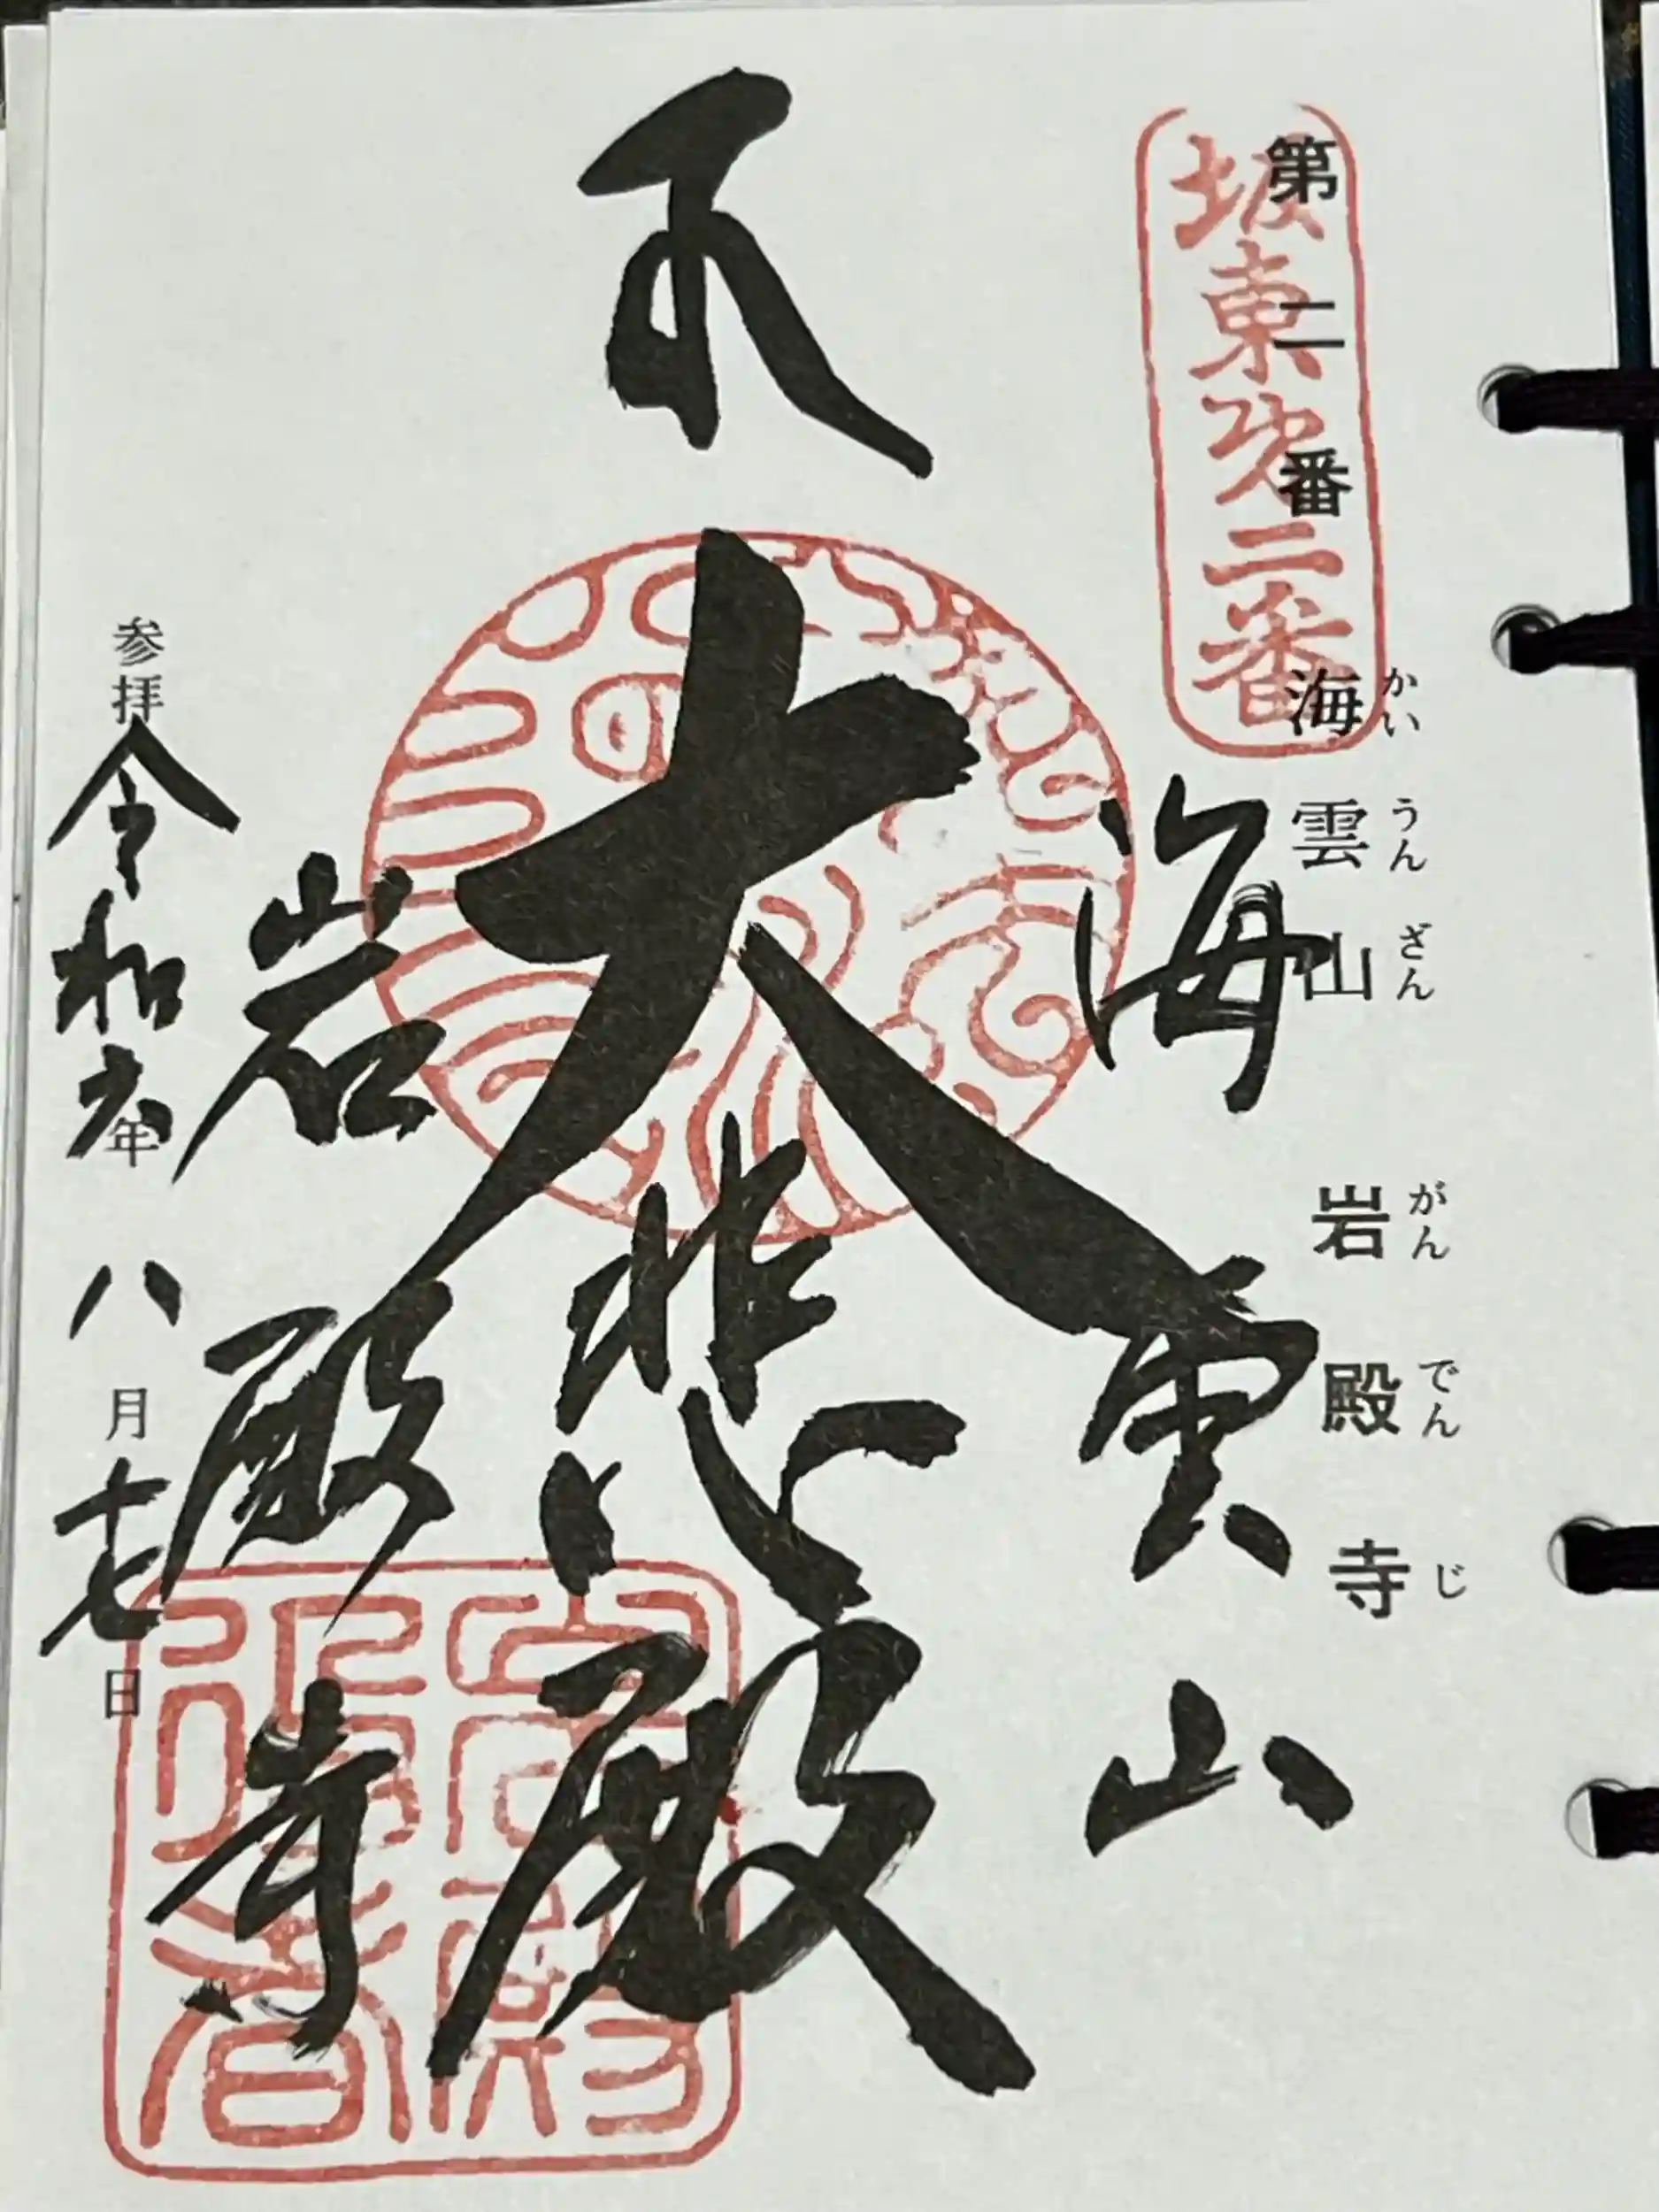 第二番 海雲山 岩殿寺
かいうんざん がんでんじ
坂東第二番
海雲山
大悲殿
岩殿寺
参拝 令和六年 八月十七日